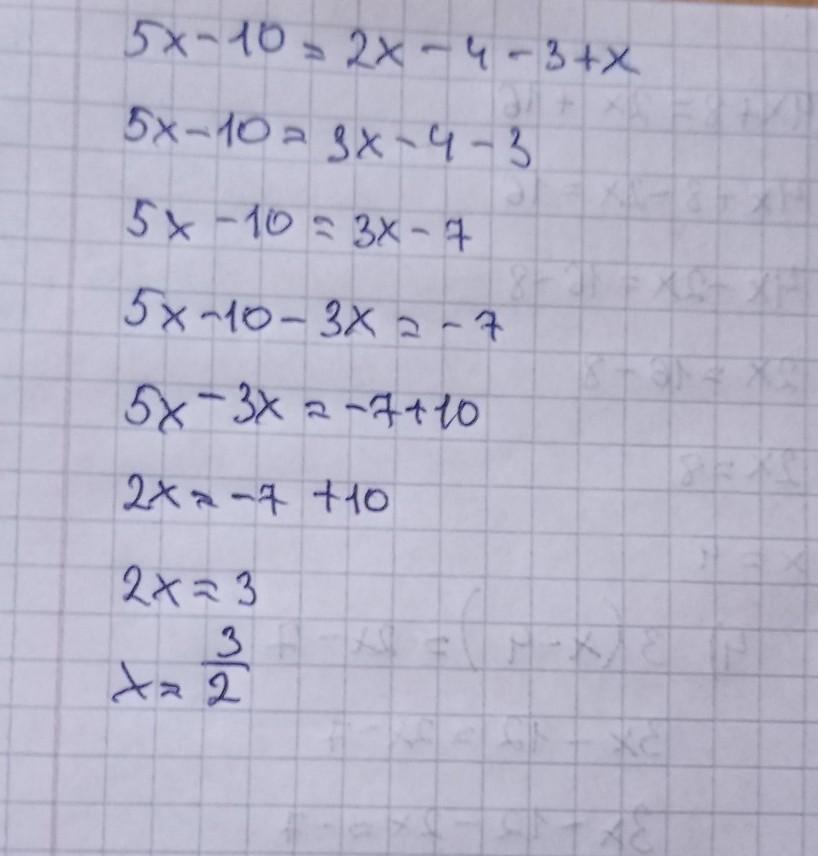 5x-10=2x-4-3+x
5x-10=3x-4-3
5x-10=3x-7
5x-10-3x=-7
5x-3x=-7+10
2x=-7+10
2x=3
x=3/2